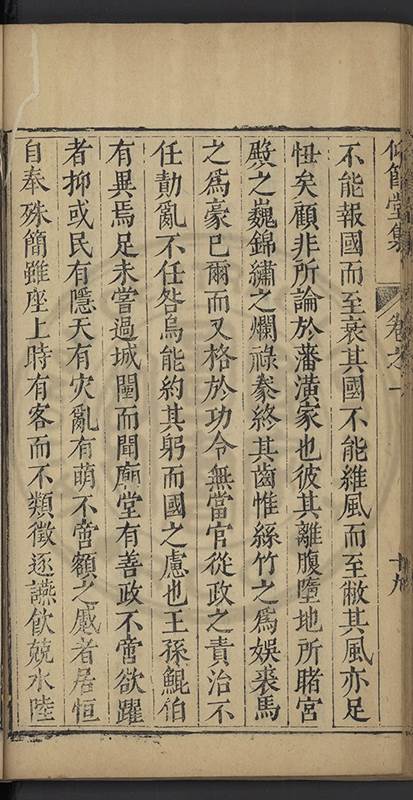 仰節堂集 卷之一 十九
不能報國而至衰其國不能維風而至敝其風亦足
忸矣顧非所論於藩潢家也彼其離腹墮地所睹宮
殿之巍錦繡之爛祿豢終其齒惟絲竹之為娛裘馬
之爲豪已爾而又格於功令無當官從政之責治不
任勣亂不任咎烏能約其躬而國之慮也王孫鯤伯
有異焉足未嘗過城闉而聞廟堂有善政不啻欲躍
者抑或民有隱天有灾亂有萌不啻額之蹙者居恒
自奉殊簡雖座上時有客而不類徵逐讌飲兢水陸